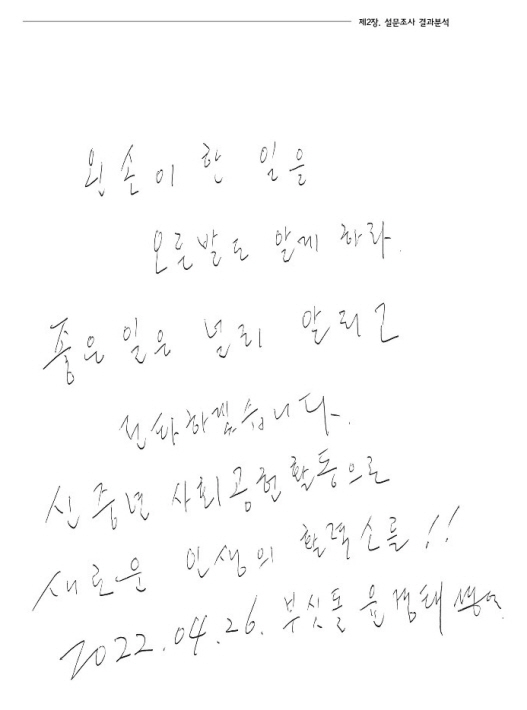 제2장. 설문조사 결과분석
왼손이 한 일을
오른발도 알게 하라.
좋은 일은 널리 알리고
전파하겠습니다.
신중년 사회공헌활동으로
새로운 인생의 활력소를!!
2022.04.26. 부싯돌 윤경태